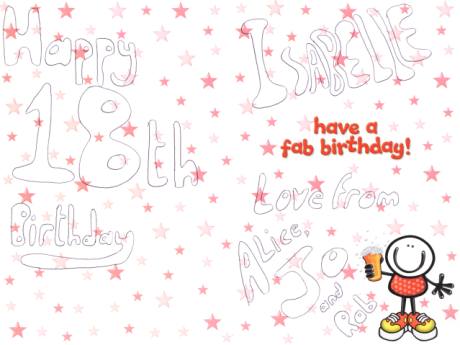 Happy
18th
Birthday
ISABELLE
have a
fab birthday!
Love from
Alice,
Jo
and
Rob